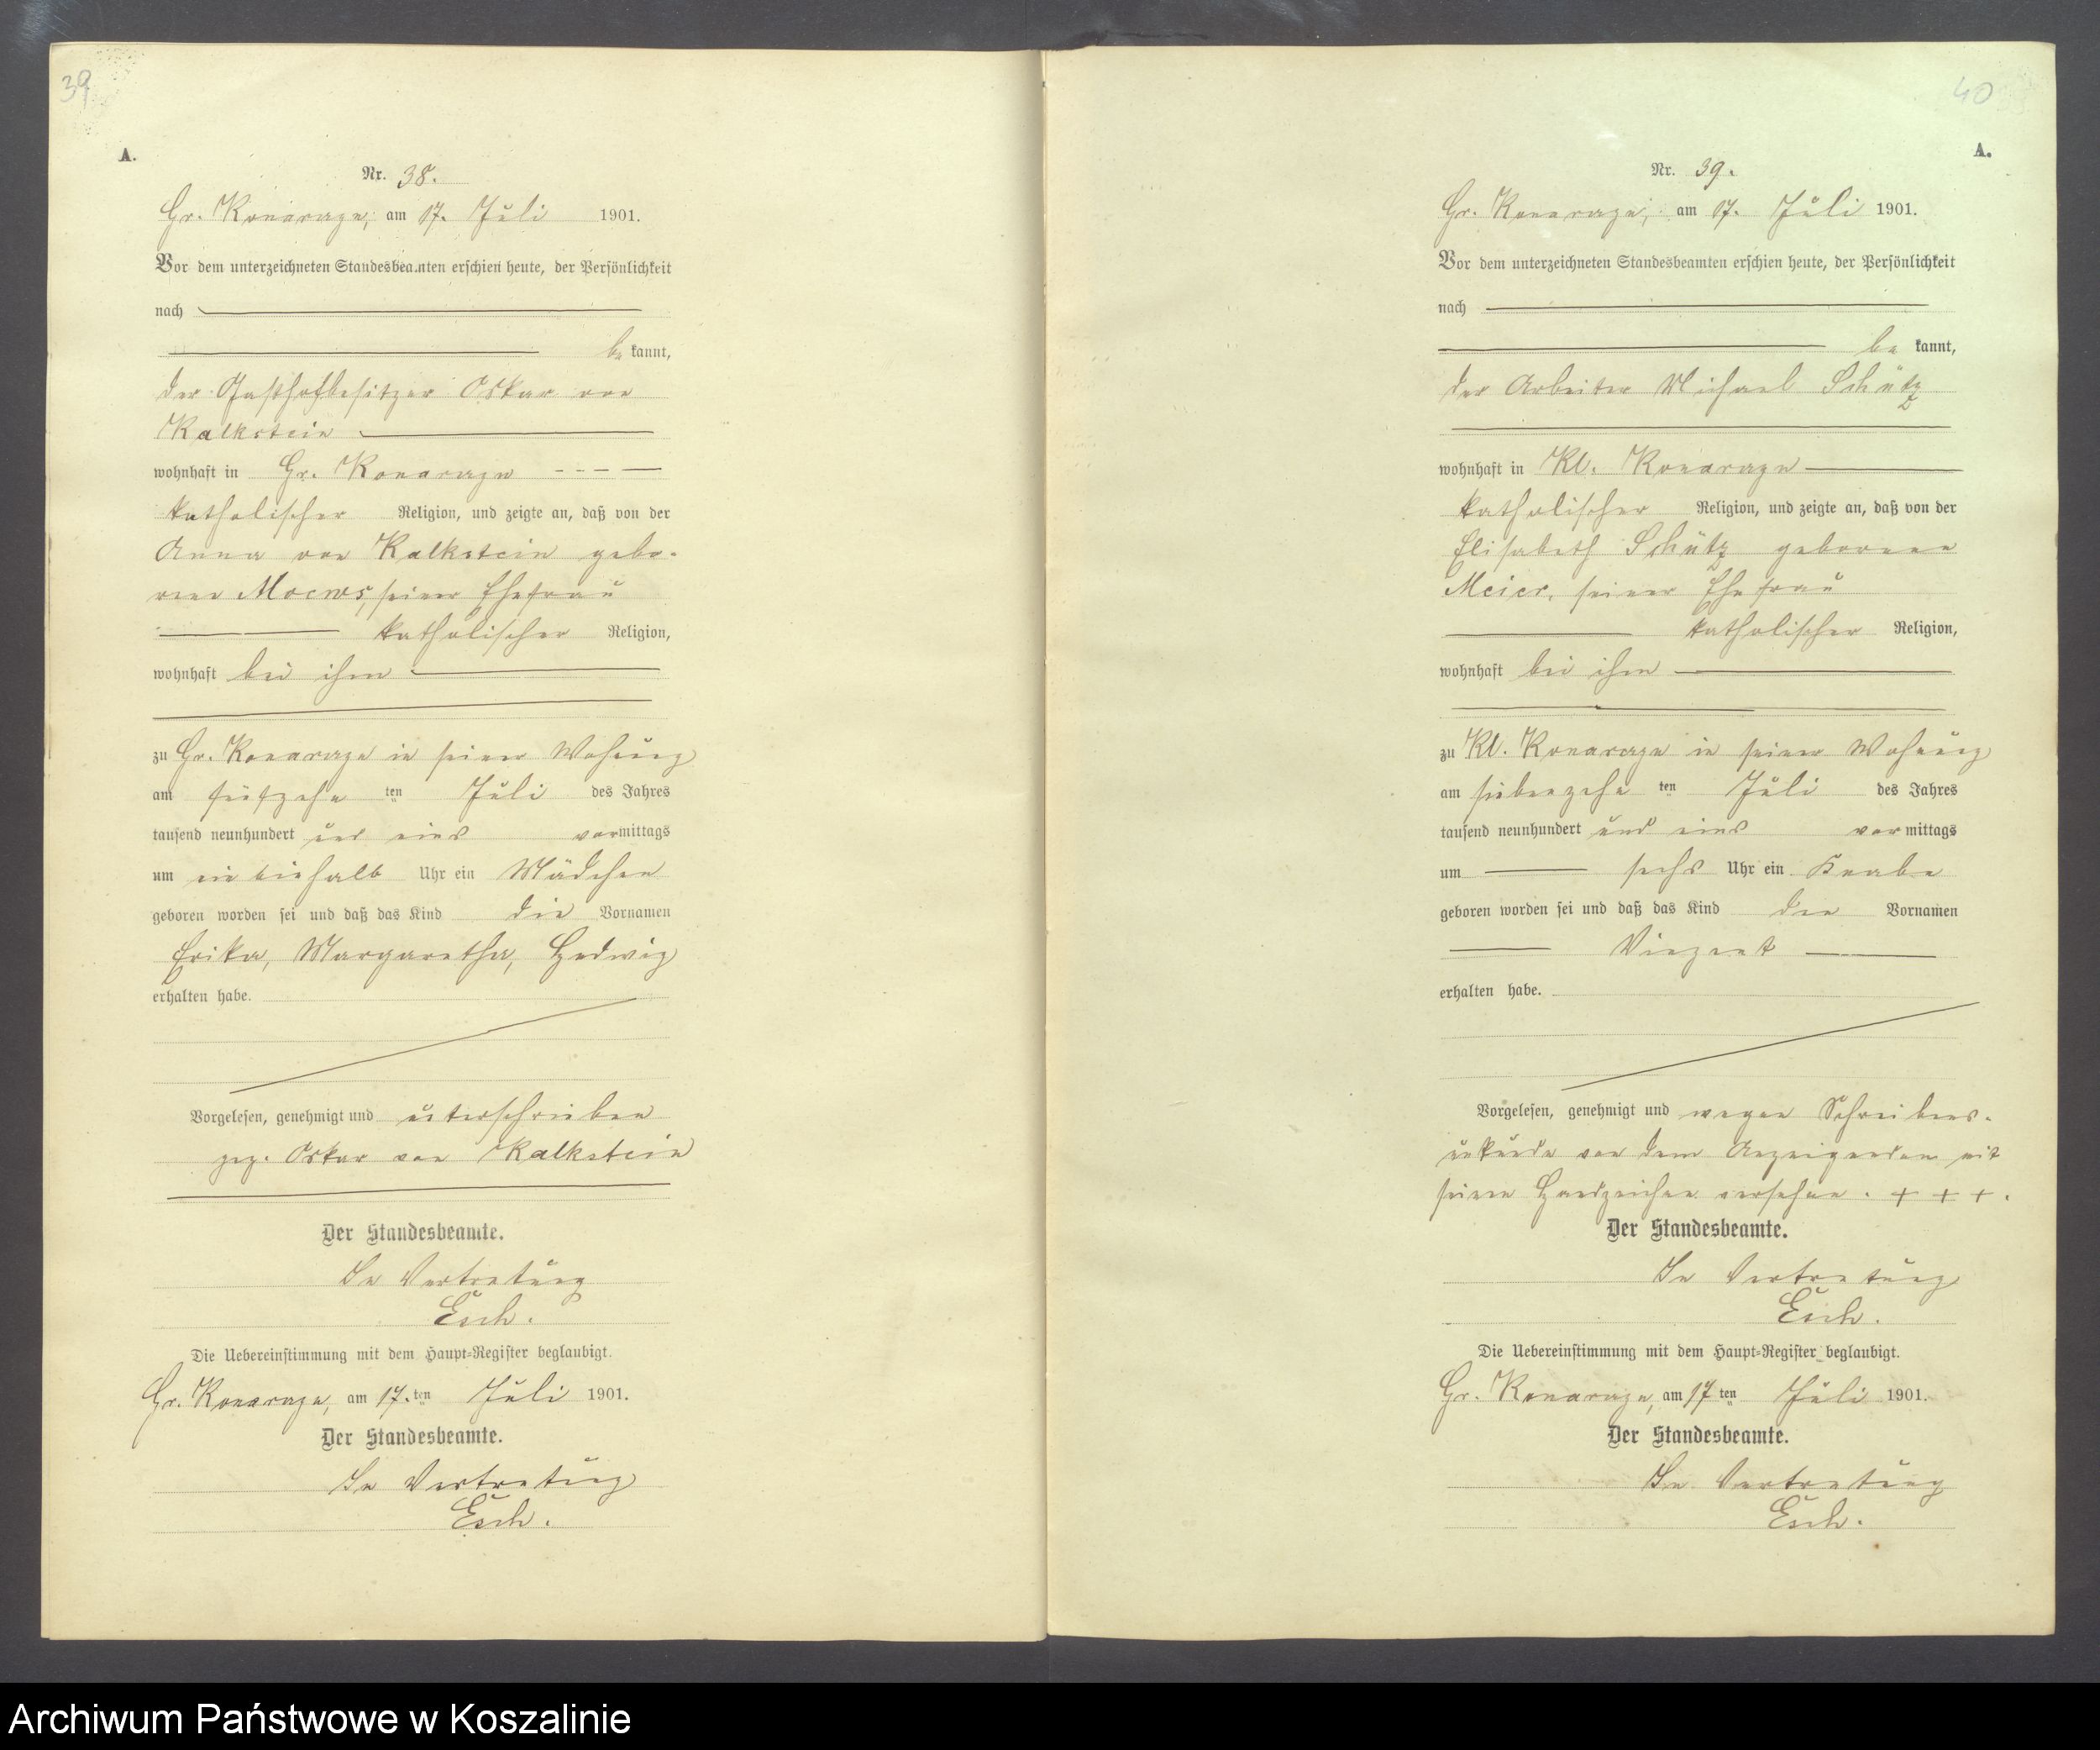 39
A.
Nr. 38.
Gr. Konarzyn, am 17. Juli 1901.
Vor dem unterzeichneten Standesbeamten erschien heute, der Persönlichkeit
nach
be kannt,
der Gasthofbesitzer Oskar von
Kalkstein
wohnhaft in Gr. Konarzyn
katholischer Religion, und zeigte an, daß von der
Anna von Kalkstein gebo-
renen seiner Ehefrau
katholischer Religion,
wohnhaft bei ihm
zu Gr. Konarzyn in seiner Wohnung
am fünfzehn ten Juli des Jahres
tausend neunhundert und eins vormittags
um Uhr ein Mädchen
geboren worden sei und daß das Kind die Vornamen
Erika, Margaretha, Hedwig
erhalten habe.
Vorgelesen, genehmigt und unterschrieben
gez. Oskar von Kalkstein
Der Standesbeamte.
In Vertretung
Esch.
Die Uebereinstimmung mit dem Haupt-Register beglaubigt.
Gr. Konarzyn, am 17. ten Juli 1901.
Der Standesbeamte.
In Vertretung
Esch.
40
A.
Nr. 39.
Gr. Konarzyn, am 17. Juli 1901.
Vor dem unterzeichneten Standesbeamten erschien heute, der Persönlichkeit
nach
be kannt,
der Arbeiter Michael Schütz
wohnhaft in Kl. Konarzyn
katholischer Religion, und zeigte an, daß von der
Elisabeth Schütz geborenen
Meier, seiner Ehefrau
katholischer Religion,
wohnhaft bei ihm
zu Kl. Konarzyn in seiner Wohnung
am siebenzehn ten Juli des Jahres
tausend neunhundert und eins vormittags
um sechs Uhr ein Knabe
geboren worden sei und daß das Kind den Vornamen
Vinzent
erhalten habe.
Vorgelesen, genehmigt und wegen Schreibens-
unkunde von dem Anzeigenden mit
seinem Handzeichen versehen. + + +.
Der Standesbeamte.
In Vertretung
Esch.
Die Uebereinstimmung mit dem Haupt-Register beglaubigt.
Gr. Konarzyn, am 17 ten Juli 1901.
Der Standesbeamte.
In Vertretung
Esch.
Archiwum Państwowe w Koszalinie